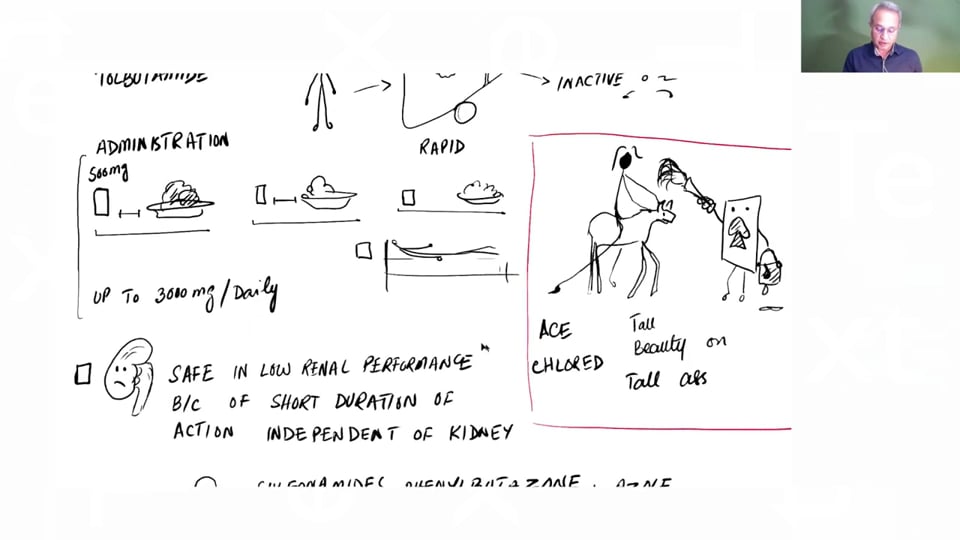 TOLBUTAMIDE
INACTIVE
ADMINISTRATION
RAPID
500mg
UP TO 3000 mg/Daily
ACE
CHLORED
Tall
Beauty on
Tall ass
SAFE IN LOW RENAL PERFORMANCE
B/C OF SHORT DURATION OF
ACTION INDEPENDENT OF KIDNEY
SULFONAMIDES PHENYLBUTAZONE,